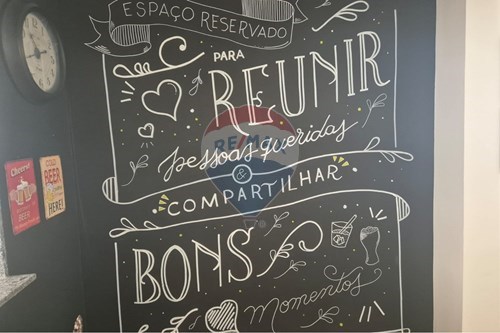 ESPAÇO RESERVADO
PARA
REUNIR
pessoas queridas
&
COMPARTILHAR
BONS
Momentos
RE/MAX
Cheers!
BEER
COLD
BEER
HERE!